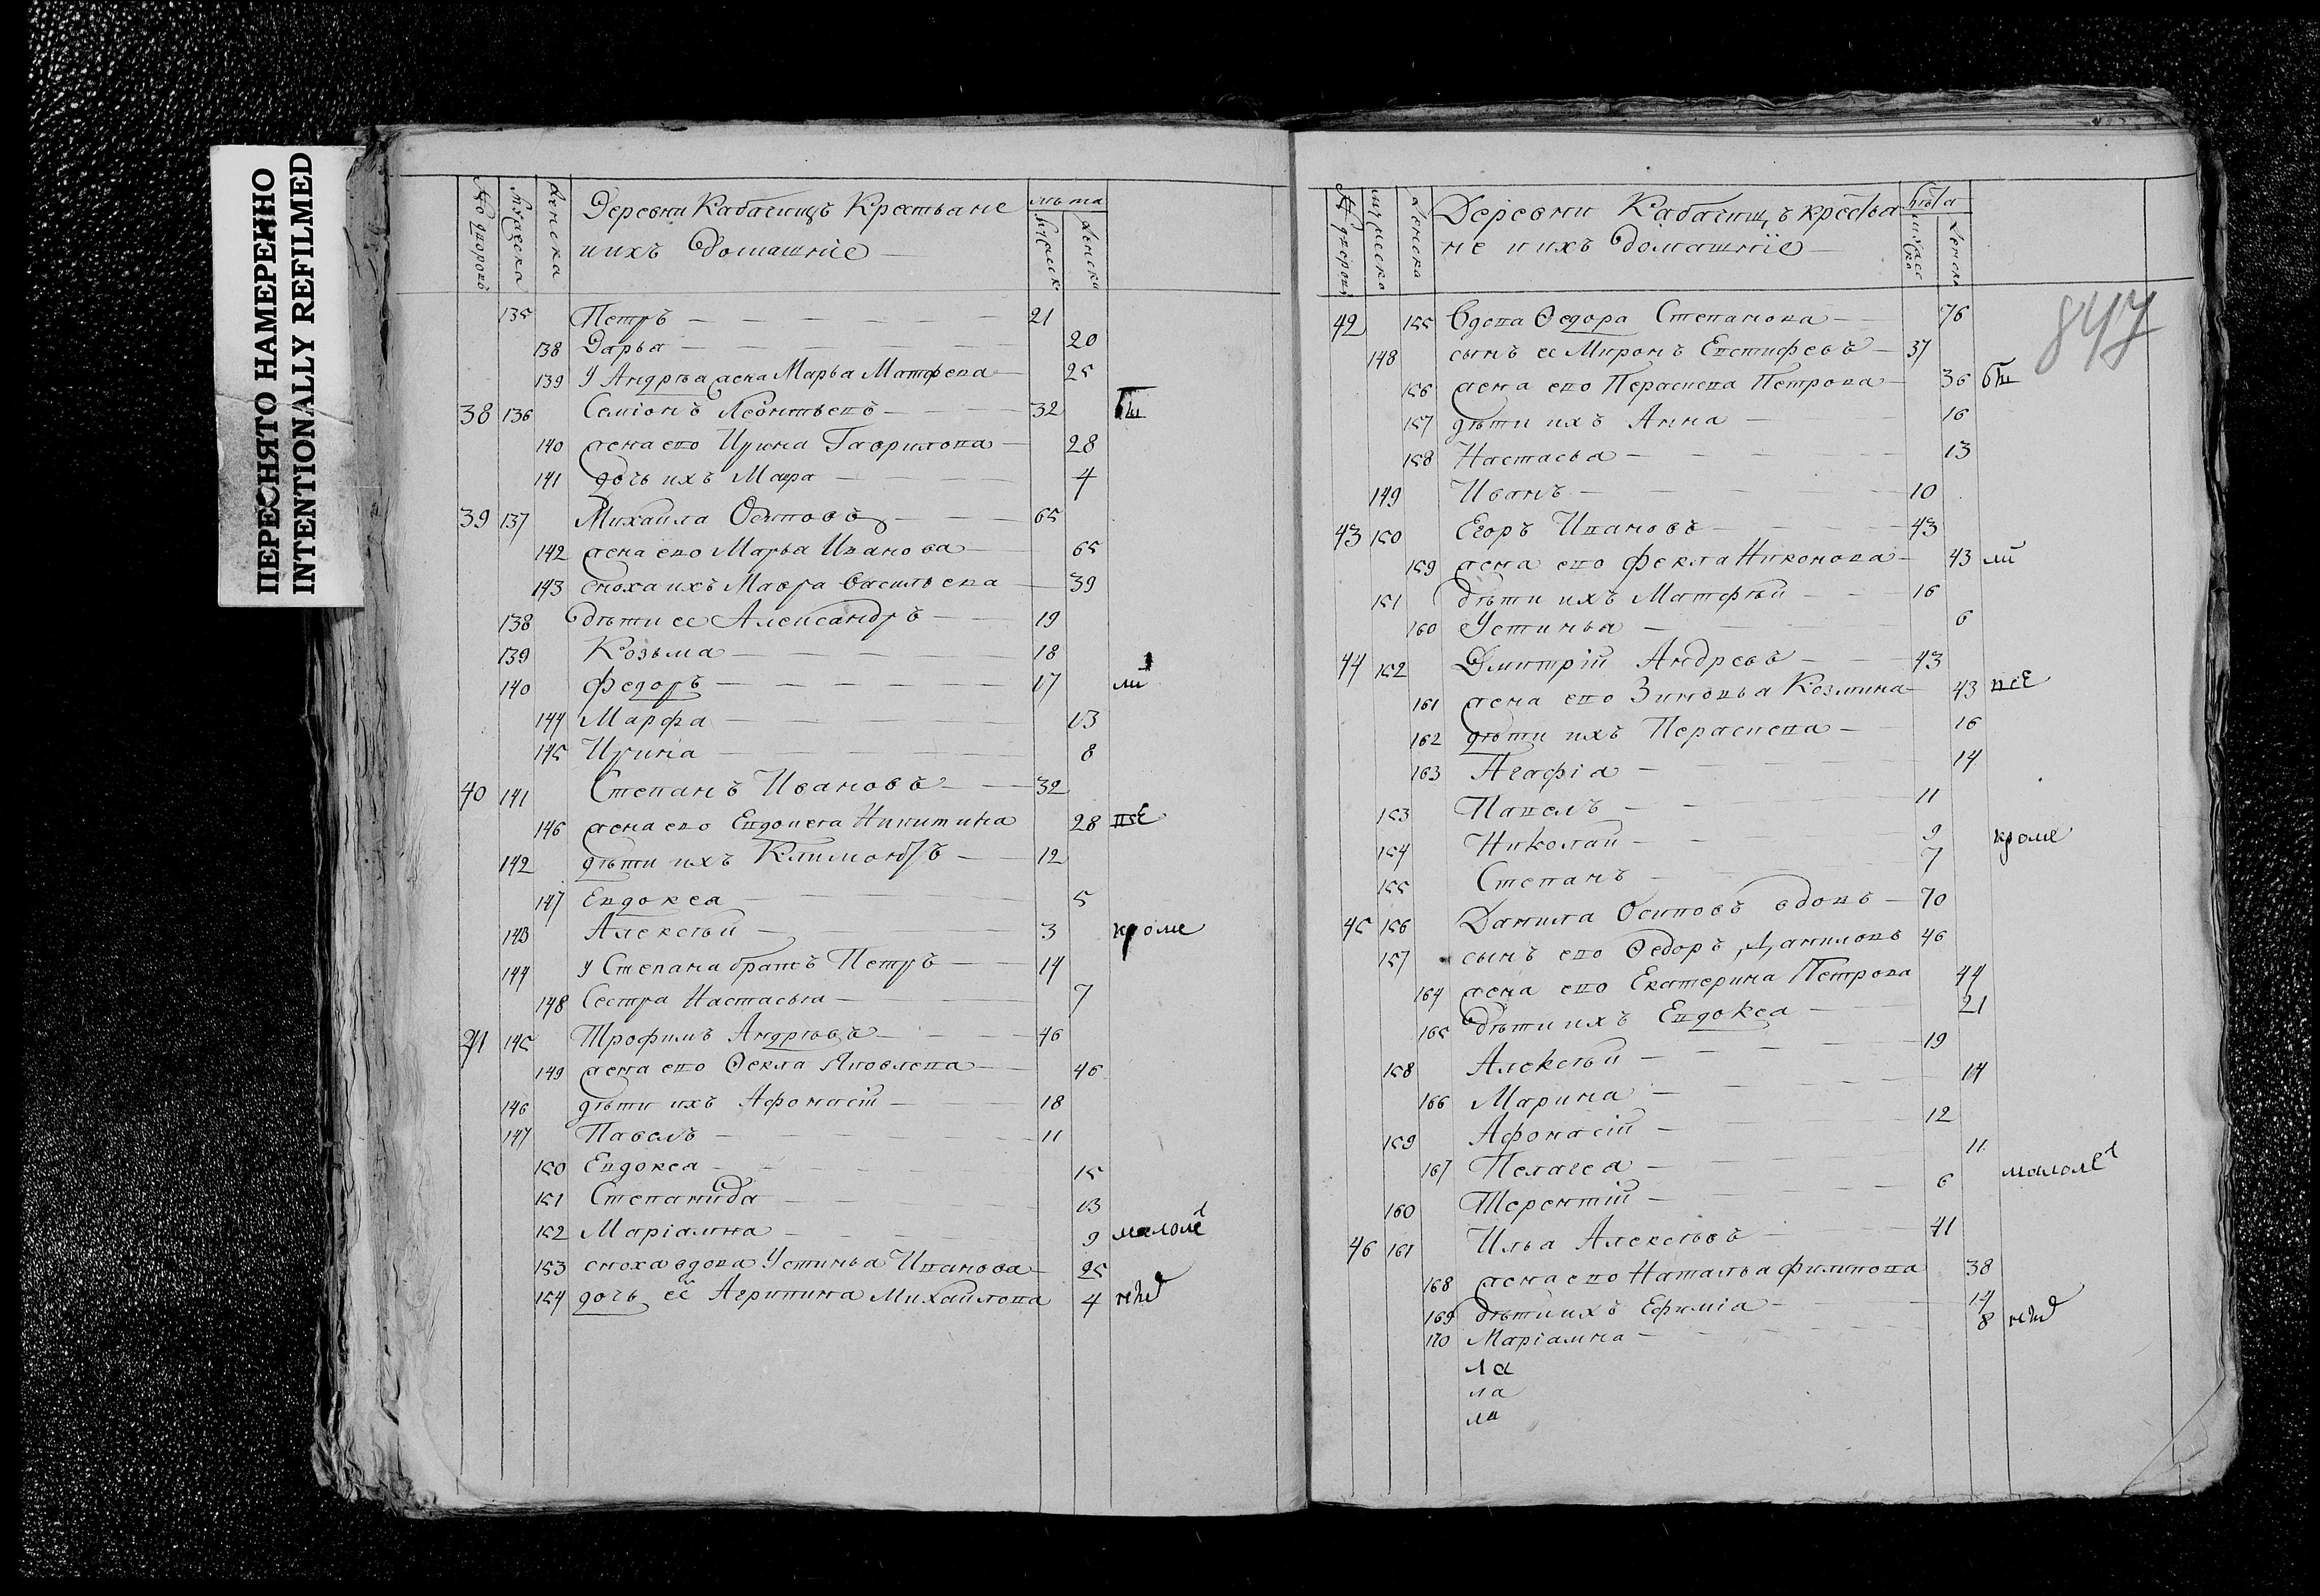 ПЕРЕСНЯТО НАМЕРЕННО
INTENTIONALLY REFILMED
Деревни Кабачищъ Крестьане
иихъ домашніе
лѣта
135 Петръ 21
138 Дарьа 20
139 У Андрѣа жена Марьа Матфева 25
38 136 Семіонъ Леонтьевъ 32
140 жена ево Ирина Гаврилова 28
141 дочь ихъ Мавра 4
39 137 Михаила Осиповъ 65
142 жена ево Марьа Иванова 65
143 сноха ихъ Мавра Васильева 39
138 дѣти ее Александръ 19
139 Козьма 18
140 Федоръ 17 ли
144 Марфа 13
145 Ирина 8
40 141 Степанъ Ивановъ 32
146 жена ево Евдокеа Никитина 28 всѣ
142 дѣти ихъ Климонтъ 12
147 Евдокеа 5
143 Алексѣй 3 кроме
144 У Степана братъ Петръ 14
148 Сестра Настасьа 7
41 145 Трофимъ Андрѣевъ 46
149 жена ево Ѳекла Яковлева 46
146 дѣти ихъ Афонасій 18
147 Павелъ 11
150 Евдокеа 15
151 Степанида 13
152 Маріамна 9 малолѣ
153 сноха вдова Устиньа Иванова 25
154 дочь еѣ Агрипина Михайлова 4
Деревни Кабачищъ крестьа
не иихъ домашніе
лѣта
847
42 155 Вдова Ѳедора Степанова 76
148 сынъ ее Миронъ Евстифевъ 37
156 жена ево Пераскева Петрова 36
157 дѣти ихъ Анна 16
158 Настасьа 13
149 Иванъ 10
43 150 Егоръ Ивановъ 43
159 жена ево Фекла Никонова 43 ли
151 дѣти ихъ Матфѣй 16
160 Устиньа 6
44 152 Дмитрій Андревъ 43
161 жена ево Зиновьа Козмина 43 всѣ
162 дѣти ихъ Пераскева 16
163 Агафіа 14
153 Павелъ 11
154 Николай 9 кроме
155 Степанъ 7
45 156 Данила Осиповъ вдовъ 70
157 сынъ ево Ѳедоръ Даниловъ 46
164 жена ево Екатерина Петрова 44
165 дѣти ихъ Евдокеа 21
158 Алексѣй 19
166 Марина 14
159 Афонасій 12
167 Пелагеа 11 малолѣ
160 Терентій 6
46 161 Ильа Алексѣевъ 41
168 жена ево Натальа Филипова 38
169 дѣти ихъ Ефиміа 14
170 Маріамна 8
ла
ла
ла